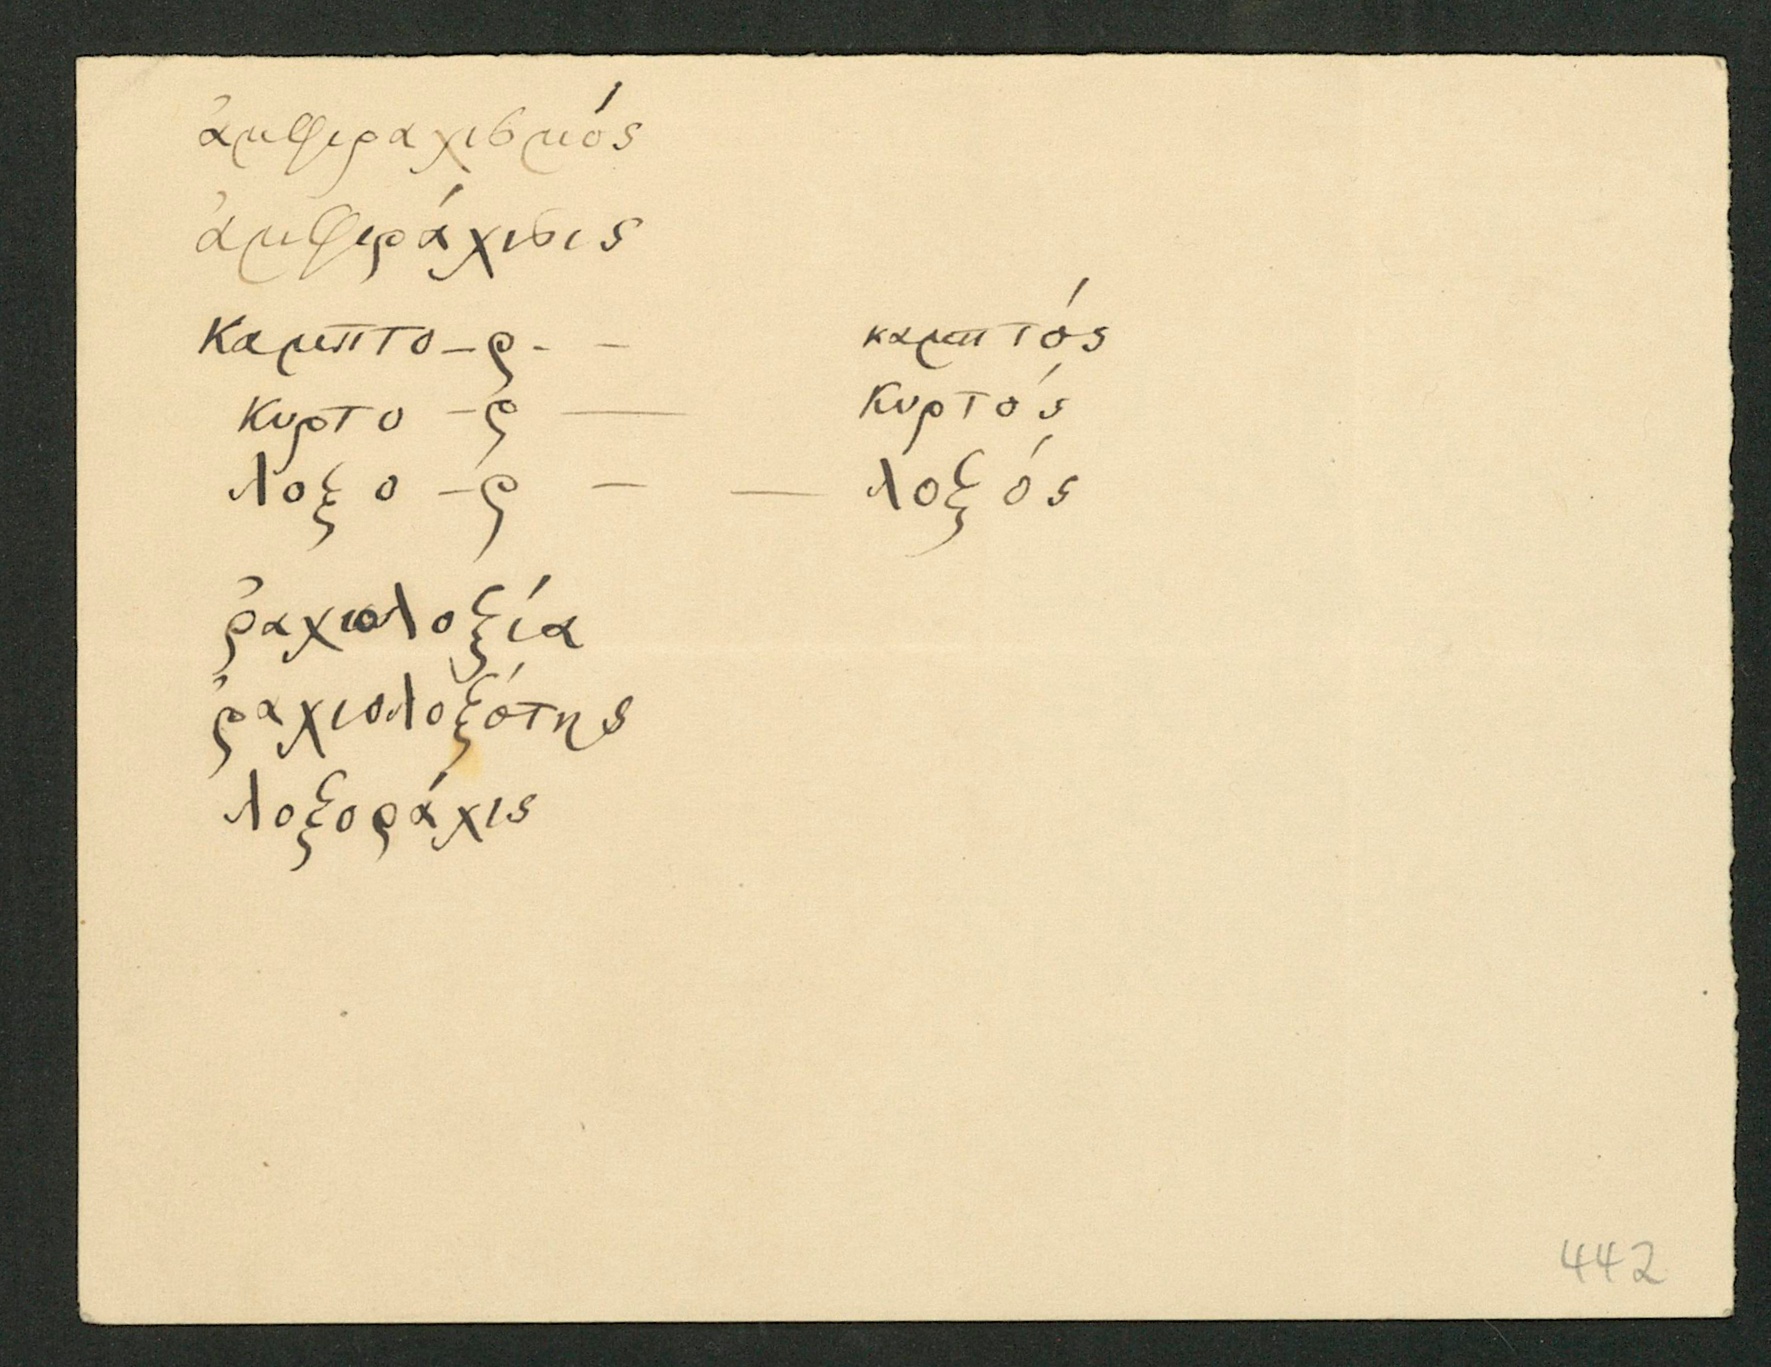 ἀμφιραχισμός
ἀμφιράχισις
Καμπτο–ρ- – καμπτός
Κυρτο –ρ — Κυρτός
λοξο –ρ – — λοξός
ῥαχιολοξία
ῥαχιολοξότης
λοξοράχις
442